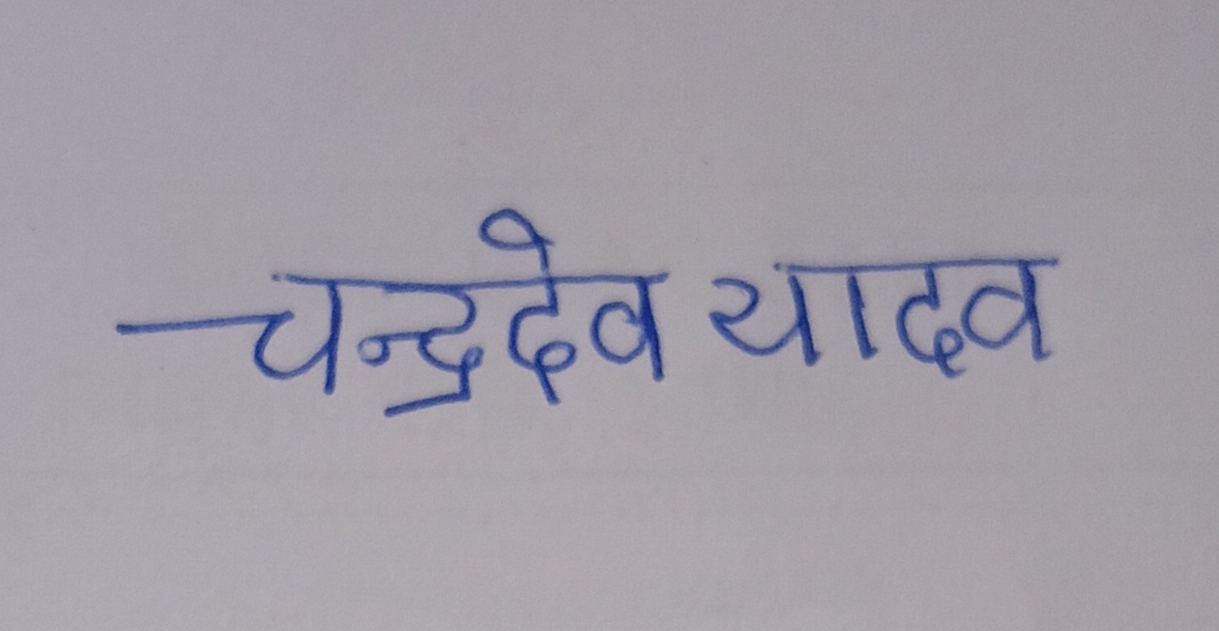 चन्द्रदेव यादव